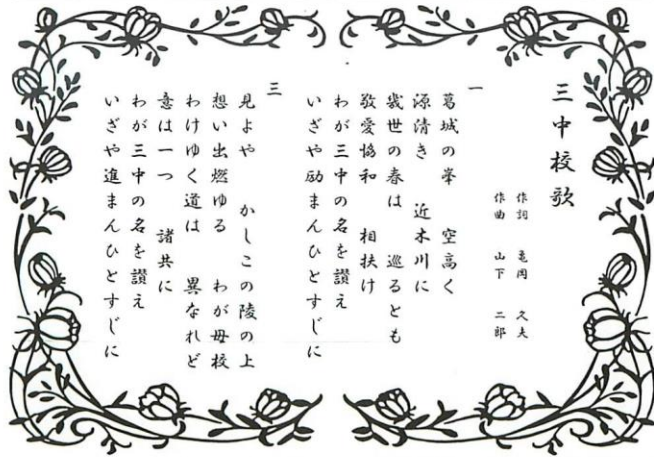 三中校歌
作詞 亀岡 久夫
作曲 山下 二郎
一
葛城の峯 空高く
源清き 近木川に
幾世の春は 巡るとも
敬愛協和 相扶け
わが三中の名を讃え
いざや励まんひとすじに
三
見よや かしこの陵の上
想い出燃ゆる わが母校
わけゆく道は 異なれど
意は一つ 諸共に
わが三中の名を讃え
いざや進まんひとすじに